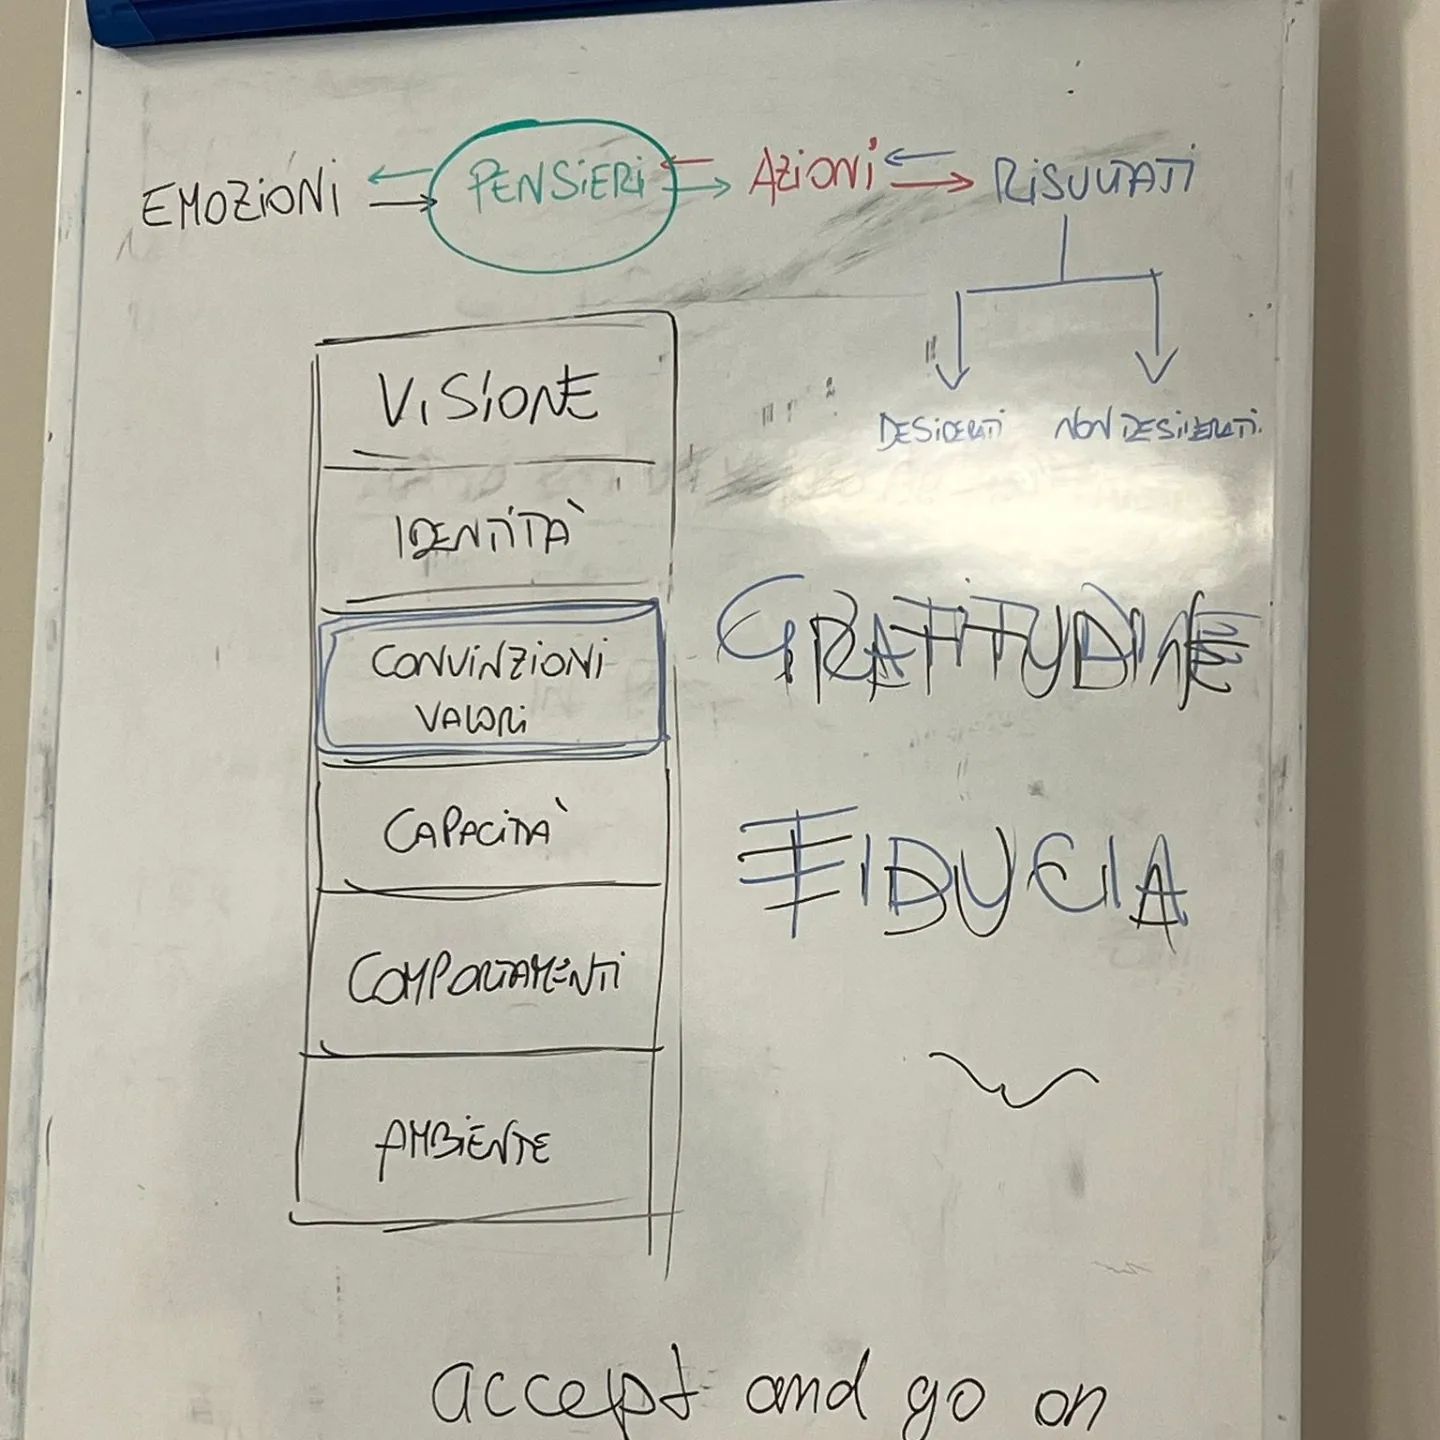 EMOZIONI PENSIERI AZIONI RISULTATI
DESIDERATI NON DESIDERATI
VISIONE
IDENTITÀ
CONVINZIONI
VALORI
GRATITUDINE
CAPACITÀ
FIDUCIA
COMPORTAMENTI
AMBIENTE
accept and go on